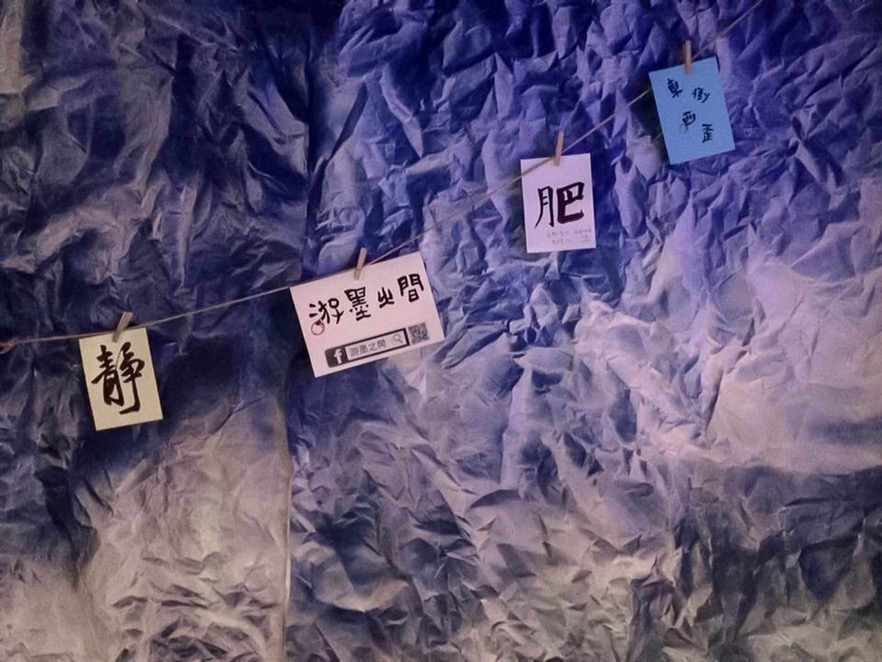 靜
游墨之間
f 游墨之間
肥
東倒
西歪